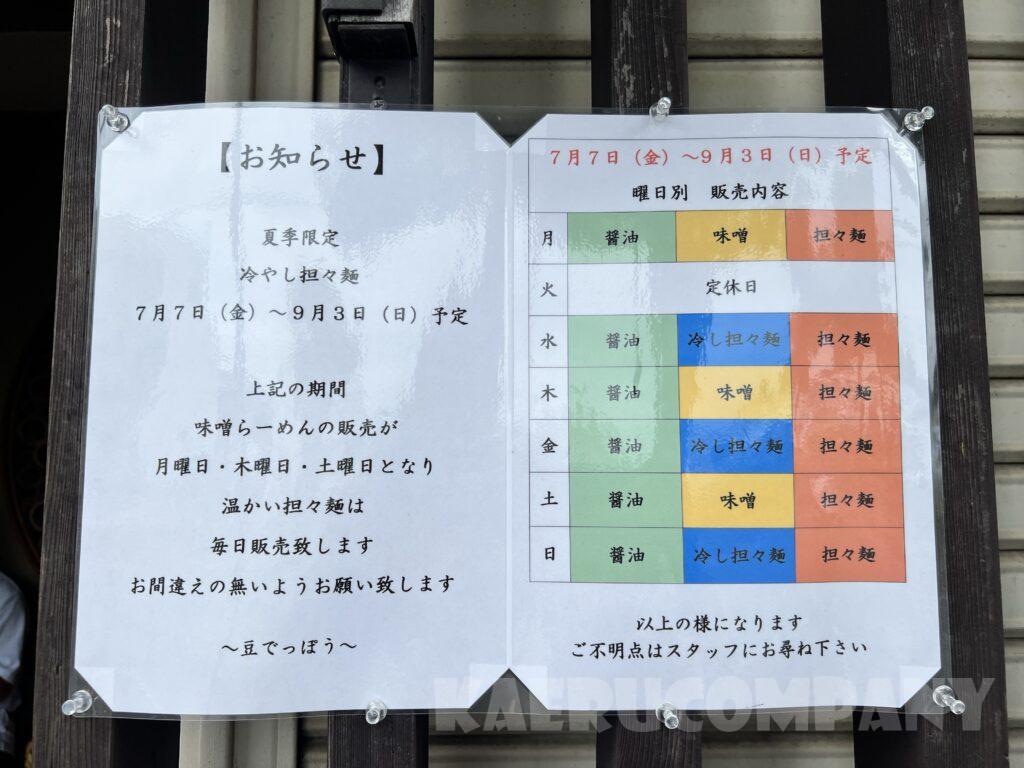 【お知らせ】
夏季限定
冷やし担々麺
７月７日（金）～９月３日（日）予定
上記の期間
味噌らーめんの販売が
月曜日・木曜日・土曜日となり
温かい担々麺は
毎日販売致します
お間違えの無いようお願い致します
～豆でっぽう～
７月７日（金）～９月３日（日）予定
曜日別　販売内容
月 醤油 味噌 担々麺
火 定休日
水 醤油 冷し担々麺 担々麺
木 醤油 味噌 担々麺
金 醤油 冷し担々麺 担々麺
土 醤油 味噌 担々麺
日 醤油 冷し担々麺 担々麺
以上の様になります
ご不明点はスタッフにお尋ね下さい
KAERUCOMPANY